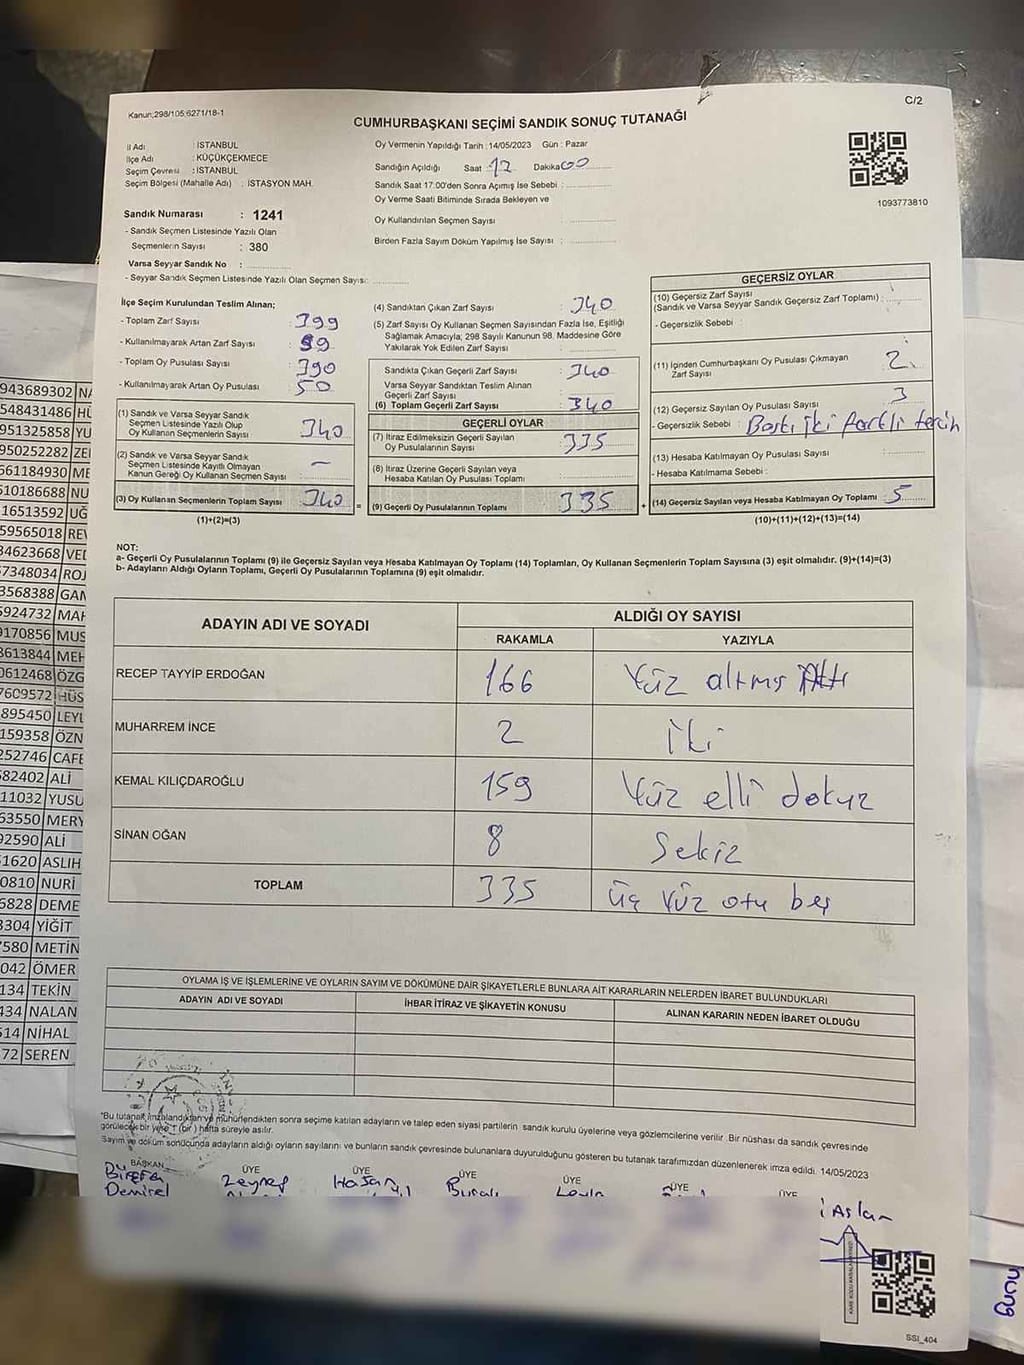 Kanun;298/105;6271/18-1
C/2
CUMHURBAŞKANI SEÇİMİ SANDIK SONUÇ TUTANAĞI
İl Adı : İSTANBUL
İlçe Adı : KÜÇÜKÇEKMECE
Seçim Çevresi : İSTANBUL
Seçim Bölgesi (Mahalle Adı) : İSTASYON MAH.
Sandık Numarası : 1241
- Sandık Seçmen Listesinde Yazılı Olan
Seçmenlerin Sayısı : 380
Varsa Seyyar Sandık No :
- Seyyar Sandık Seçmen Listesinde Yazılı Olan Seçmen Sayısı:
Oy Vermenin Yapıldığı Tarih :14/05/2023 Gün : Pazar
Sandığın Açıldığı Saat : 17 Dakika: 00
Sandık Saat 17:00'den Sonra Açımış İse Sebebi :
Oy Verme Saati Bitiminde Sırada Bekleyen ve
Oy Kullandırılan Seçmen Sayısı :
Birden Fazla Sayım Döküm Yapılmış İse Sayısı :
1093773810
İlçe Seçim Kurulundan Teslim Alınan;
- Toplam Zarf Sayısı : 399
- Kullanılmayarak Artan Zarf Sayısı : 59
- Toplam Oy Pusulası Sayısı : 390
- Kullanılmayarak Artan Oy Pusulası : 50
(1) Sandık ve Varsa Seyyar Sandık
Seçmen Listesinde Yazılı Olup
Oy Kullanan Seçmenlerin Sayısı : 340
(2) Sandık ve Varsa Seyyar Sandık
Seçmen Listesinde Kayıtlı Olmayan
Kanun Gereği Oy Kullanan Seçmen Sayısı : —
(3) Oy Kullanan Seçmenlerin Toplam Sayısı : 340
(1)+(2)=(3)
(4) Sandıktan Çıkan Zarf Sayısı : 340
(5) Zarf Sayısı Oy Kullanan Seçmen Sayısından Fazla İse, Eşitliği
Sağlamak Amacıyla; 298 Sayılı Kanunun 98. Maddesine Göre
Yakılarak Yok Edilen Zarf Sayısı :
Sandıkta Çıkan Geçerli Zarf Sayısı : 340
Varsa Seyyar Sandıktan Teslim Alınan
Geçerli Zarf Sayısı :
(6) Toplam Geçerli Zarf Sayısı : 340
GEÇERLİ OYLAR
(7) İtiraz Edilmeksizin Geçerli Sayılan
Oy Pusulasının Sayısı : 335
(8) İtiraz Üzerine Geçerli Sayılan veya
Hesaba Katılan Oy Pusulası Toplamı :
(9) Geçerli Oy Pusulalarının Toplamı : 335
GEÇERSİZ OYLAR
(10) Geçersiz Zarf Sayısı
(Sandık ve Varsa Seyyar Sandık Geçersiz Zarf Toplamı) :
- Geçersizlik Sebebi :
(11) İçinden Cumhurbaşkanı Oy Pusulası Çıkmayan
Zarf Sayısı : 2
(12) Geçersiz Sayılan Oy Pusulası Sayısı : 3
- Geçersizlik Sebebi : iki farklı tercih
(13) Hesaba Katılmayan Oy Pusulası Sayısı :
- Hesaba Katılmama Sebebi :
(14) Geçersiz Sayılan veya Hesaba Katılmayan Oy Toplamı : 5
(10)+(11)+(12)+(13)=(14)
NOT:
a- Geçerli Oy Pusulalarının Toplamı (9) ile Geçersiz Sayılan veya Hesaba Katılmayan Oy Toplamı (14) Toplamları, Oy Kullanan Seçmenlerin Toplam Sayısına (3) eşit olmalıdır. (9)+(14)=(3)
b- Adayların Aldığı Oyların Toplamı, Geçerli Oy Pusulalarının Toplamına (9) eşit olmalıdır.
ADAYIN ADI VE SOYADI
ALDIĞI OY SAYISI
RAKAMLA YAZIYLA
RECEP TAYYİP ERDOĞAN 166 Yüz altmış Altı
MUHARREM İNCE 2 İki
KEMAL KILIÇDAROĞLU 159 Yüz elli dokuz
SİNAN OĞAN 8 Sekiz
TOPLAM 335 üç yüz otu beş
OYLAMA İŞ VE İŞLEMLERİNE VE OYLARIN SAYIM VE DÖKÜMÜNE DAİR ŞİKAYETLERLE BUNLARA AİT KARARLARIN NELERDEN İBARET BULUNDUKLARI
ADAYIN ADI VE SOYADI İHBAR İTİRAZ VE ŞİKAYETİN KONUSU ALINAN KARARIN NEDEN İBARET OLDUĞU
*Bu tutanak imzalandıktan ve mühürlendikten sonra seçime katılan adayların ve talep eden siyasi partilerin sandık kurulu üyelerine veya gözlemcilerine verilir. Bir nüshası da sandık çevresinde
görülecek bir yere 1 (bir) hafta süreyle asılır.
Sayım ve döküm sonucunda adayların aldığı oyların sayıları ve bunların sandık çevresinde bulunanlara duyurulduğunu gösteren bu tutanak tarafımızdan düzenlenerek imza edildi. 14/05/2023
BAŞKAN ÜYE ÜYE ÜYE ÜYE ÜYE ÜYE
Demirel Zeynep Hasan
Aslan
SSI_404
943689302 NA
548431486 HÜ
951325858 YU
950252282 ZE
661184930 ME
510186688 NU
16513592 UĞ
59565018 REV
34623668 VEL
57348034 ROJ
3568388 GAN
5924732 MAH
9170856 MUS
8613844 MEH
0612468 ÖZG
7609572 HÜS
895450 LEYL
159358 ÖZN
252746 CAFE
682402 ALİ
11032 YUSU
63550 MERY
92590 ALİ
61620 ASLIH
0810 NURİ
6828 DEME
3304 YİĞİT
7580 METİN
042 ÖMER
134 TEKİN
434 NALAN
514 NİHAL
72 SEREN